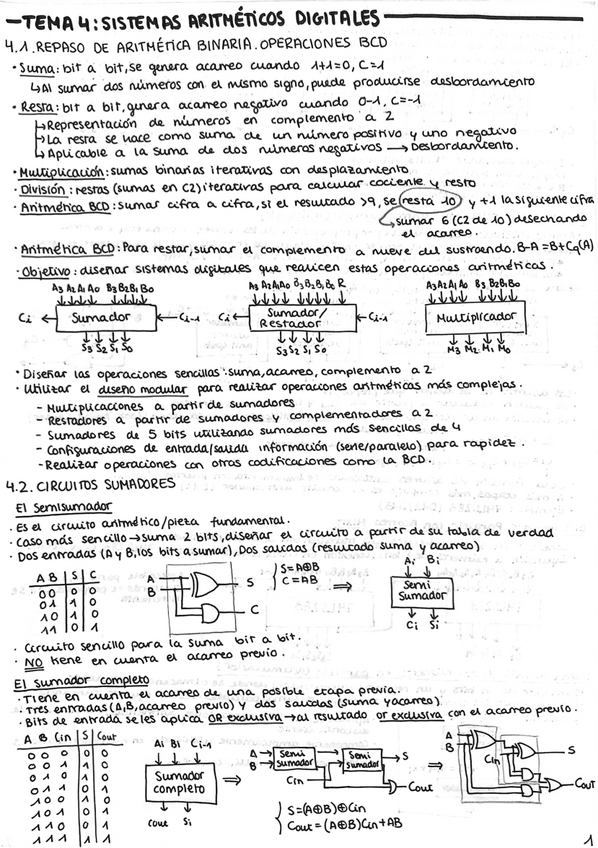 —TEMA 4: SISTEMAS ARITMÉTICOS DIGITALES—
4.1. REPASO DE ARITMÉTICA BINARIA. OPERACIONES BCD
· Suma: bit a bit, se genera acarreo cuando 1+1=0, C=1
↳ Al sumar dos números con el mismo signo, puede producirse desbordamiento
· Resta: bit a bit, genera acarreo negativo cuando 0-1, C=-1
↳ Representación de números en complemento a 2
↳ La resta se hace como suma de un número positivo y uno negativo
↳ Aplicable a la suma de dos números negativos → Desbordamiento.
· Multiplicación: sumas binarias iterativas con desplazamiento
· División: restas (sumas en C2) iterativas para calcular cociente y resto
· Aritmética BCD: sumar cifra a cifra, si el resultado >9, se resta 10 y +1 la siguiente cifra
↳ sumar 6 (C2 de 10) desechando
el acarreo.
· Aritmética BCD: Para restar, sumar el complemento a nueve del sustraendo. B-A = B+C9(A)
· Objetivo: diseñar sistemas digitales que realicen estas operaciones aritméticas.
A3 A2 A1 A0 B3 B2 B1 B0 A3 A2 A1 A0 B3 B2 B1 B0 R A3 A2 A1 A0 B3 B2 B1 B0
Ci ← Sumador ← Ci-1 Ci ← Sumador/ Restador ← Ci-1 Multiplicador
S3 S2 S1 S0 S3 S2 S1 S0 M3 M2 M1 M0
· Diseñar las operaciones sencillas: suma, acarreo, complemento a 2
· Utilizar el diseño modular para realizar operaciones aritméticas más complejas.
- Multiplicaciones a partir de sumadores
- Restadores a partir de sumadores y complementadores a 2
- Sumadores de 5 bits utilizando sumadores más sencillos de 4
- Configuraciones de entrada/salida información (serie/paralelo) para rapidez.
- Realizar operaciones con otras codificaciones como la BCD.
4.2. CIRCUITOS SUMADORES
El Semisumador
· Es el circuito aritmético/pieza fundamental.
· Caso más sencillo → suma 2 bits, diseñar el circuito a partir de su tabla de verdad
· Dos entradas (A y B, los bits a sumar), Dos salidas (resultado suma y acarreo)
A B S C
0 0 0 0
0 1 1 0
1 0 1 0
1 1 0 1
A
B
S
C
S = A⊕B
C = AB
⇒
Ai Bi
Semi
Sumador
Ci Si
· Circuito sencillo para la suma bit a bit.
· NO tiene en cuenta el acarreo previo.
El Sumador completo
· Tiene en cuenta el acarreo de una posible etapa previa.
· Tres entradas (A, B, acarreo previo) y dos salidas (suma y acarreo)
· Bits de entrada se les aplica OR exclusiva → al resultado or exclusiva con el acarreo previo.
A B Cin S Cout
0 0 0 0 0
0 0 1 1 0
0 1 0 1 0
0 1 1 0 1
1 0 0 1 0
1 0 1 0 1
1 1 0 0 1
1 1 1 1 1
Ai Bi Ci-1
Sumador
completo
Cout Si
⇒
A
B
Semi
sumador
Semi
sumador
S
Cin
Cout
S=(A⊕B)⊕Cin
Cout = (A⊕B)Cin + AB
⇒
A
B
Cin
S
Cout
1